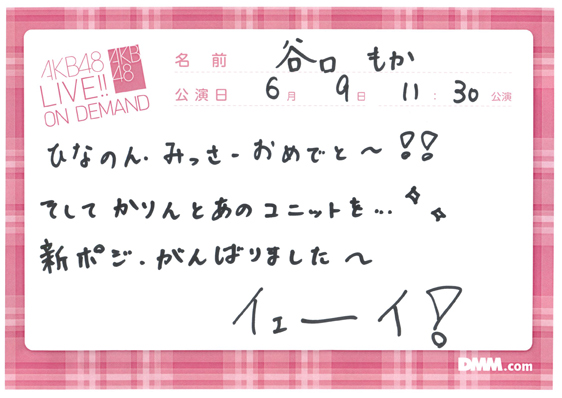 AKB48
LIVE!!
ON DEMAND
AKB
48
名前 谷口 もか
公演日 6月 9日 11:30 公演
ひなのん・みっさーおめでと〜!!
そしてかりんとあのユニットを…
新ポジ・がんばりました〜
イェーイ!
DMM.com